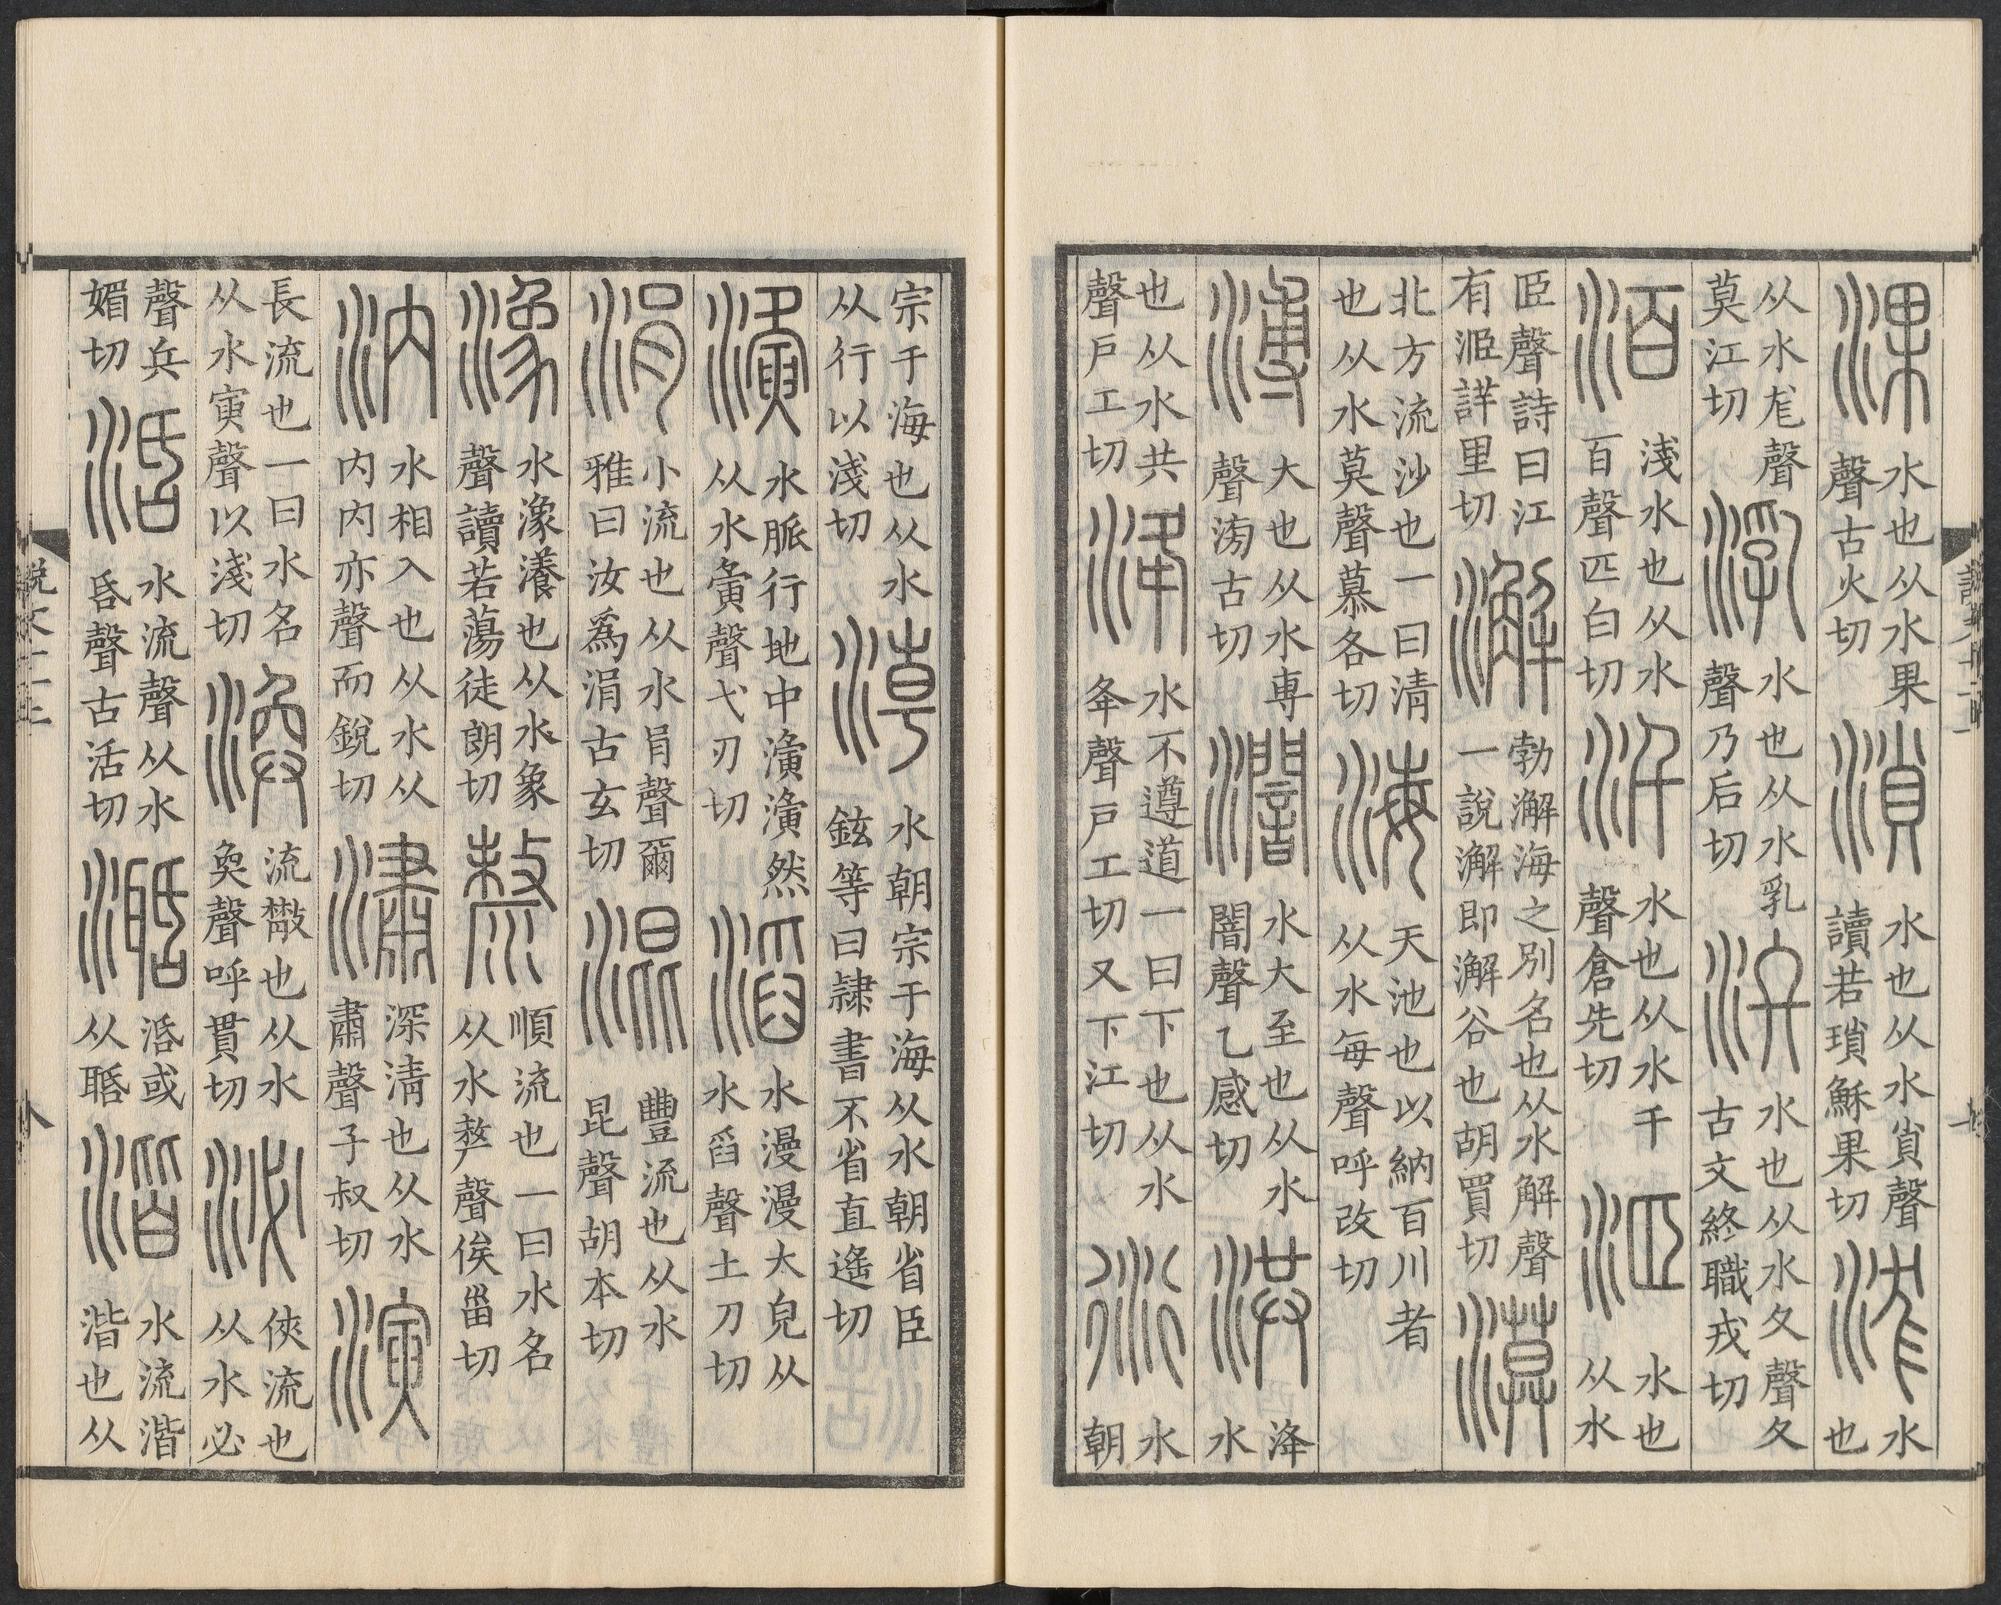 淉水也从水果聲古火切溑水也从水𧴪聲讀若瑣穌果切浝水也
从水尨聲莫江切㳶水也从水乳聲乃后切汷水也从水夂聲夂古文終職戎切
洦淺水也从水百聲匹白切汘水也从水千聲倉先切洍水也从水
𦣞聲詩曰江有洍詳里切澥勃澥海之別名也从水解聲一說澥即澥谷也胡買切漠
北方流沙也一曰清也从水莫聲慕各切海天池也以納百川者从水每聲呼改切
溥大也从水尃聲滂古切水大至也从水闇聲乙感切洪洚水
也从水共聲戶工切洚水不遵道一曰下也从水夅聲戶工切又下江切衍水朝
宗于海也从水从行以淺切淖水朝宗于海从水朝省臣鉉等曰隸書不省直遙切
濥水脈行地中濥濥然从水夤聲弋刃切滔水漫漫大皃从水舀聲土刀切
涓小流也从水肙聲爾雅曰汝爲涓古玄切混豐流也从水昆聲胡本切
潒水潒瀁也从水象聲讀若蕩徒朗切漦順流也一曰水名从水𠩺聲俟甾切
汭水相入也从水从内内亦聲而銳切潚深清也从水肅聲子叔切演
長流也一曰水名从水寅聲以淺切渙流㪔也从水奐聲呼貫切泌俠流也从水必
聲兵媚切活水流聲从水𠯑聲古活切𣿅活或从聒湝水流湝湝也从